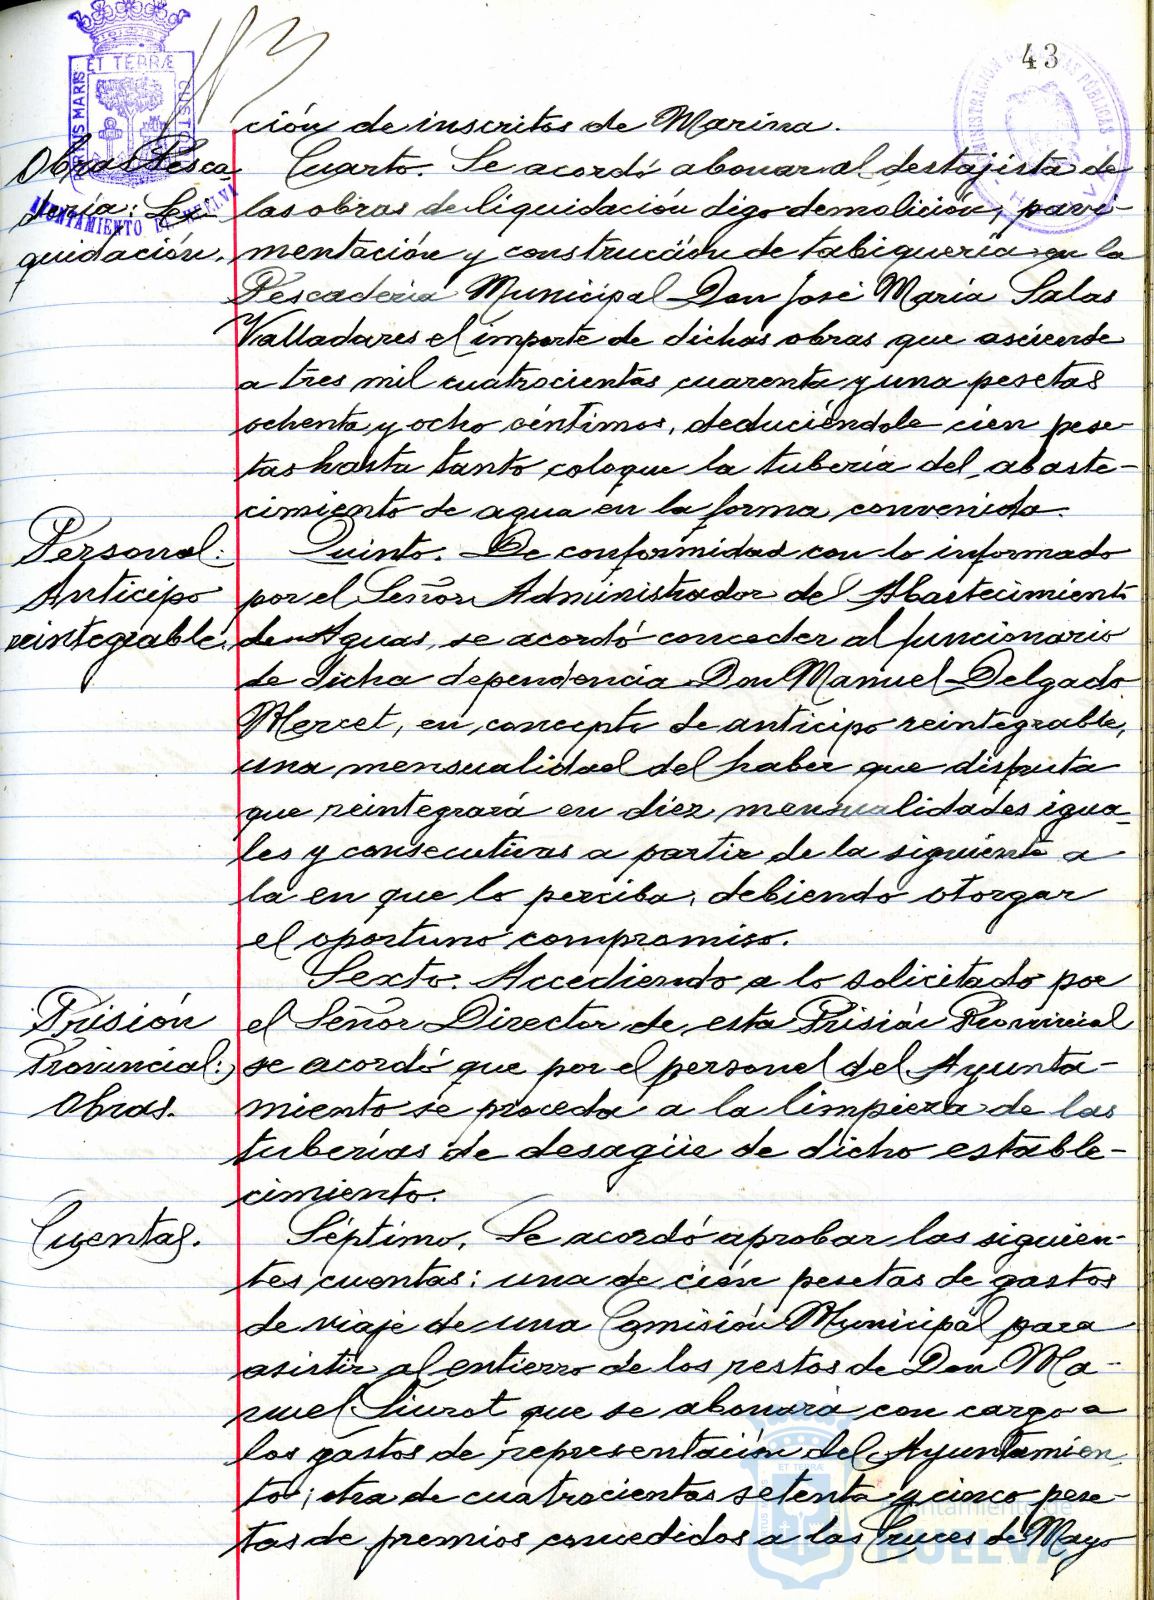 43
ET TERRÆ
AYUNTAMIENTO DE HUELVA
ción de inscritos de Marina.
Obras Pesca-
dería: Li-
quidación.
Cuarto. Se acordó abonar al destajista de
las obras de liquidación digo demolición, pavi-
mentación y construcción de tabiquería en la
Pescaderia Municipal Don José Maria Salas
Valladares el importe de dichas obras que asciende
a tres mil cuatrocientas cuarenta y una pesetas
ochenta y ocho céntimos, deduciéndole cien pese-
tas hasta tanto coloque la tuberia del abaste-
cimiento de agua en la forma convenida.
Personal:
Anticipo
reintegrable.
Quinto. De conformidad con lo informado
por el Señor Administrador del Abastecimiento
de Aguas, se acordó conceder al funcionario
de dicha dependencia Don Manuel Delgado
Mercet, en concepto de anticipo reintegrable,
una mensualidad del haber que disfruta
que reintegrará en diez mensualidades igua-
les y consecutivas a partir de la siguiente a
la en que lo perciba, debiendo otorgar
el oportuno compromiso.
Prisión
Provincial:
Obras.
Sexto. Accediendo a lo solicitado por
el Señor Director de esta Prisión Provincial
se acordó que por el personal del Ayunta-
miento se proceda a la limpieza de las
tuberías de desagüe de dicho estable-
cimiento.
Cuentas.
Séptimo. Se acordó aprobar las siguien-
tes cuentas: una de cien pesetas de gastos
de viaje de una Comisión Municipal para
asistir al entierro de los restos de Don Ma-
nuel Siurot que se abonará con cargo a
los gastos de representación del Ayuntamien-
to; otra de cuatrocientas setenta y cinco pese-
tas de premios concedidos a las Cruces de Mayo
Ayuntamiento de
HUELVA